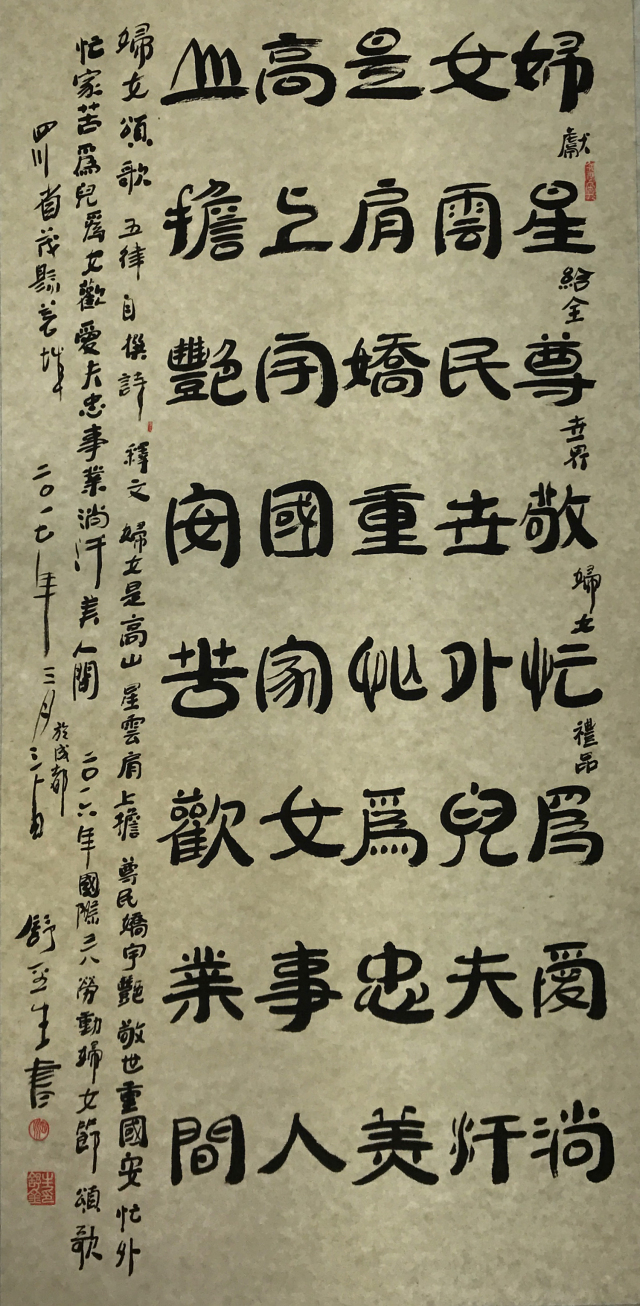 獻給全卋界婦女禮品
婦女是高山
星雲肩上擔
尊民嬌宇艷
敬卋重國安
忙外忙家苦
爲兒爲女歡
愛夫忠事業
淌汗美人間
婦女頌歌 五律自撰詩 釋文 婦女是高山 星雲肩上擔 尊民嬌宇艷 敬世重國安 忙外
忙家苦爲兒爲女歡愛夫忠事業淌汗美人間 二〇一六年國際三八勞動婦女節 頌歌
四川省茂縣羌城 二〇一七年三月三十日 於成都 舒金生書